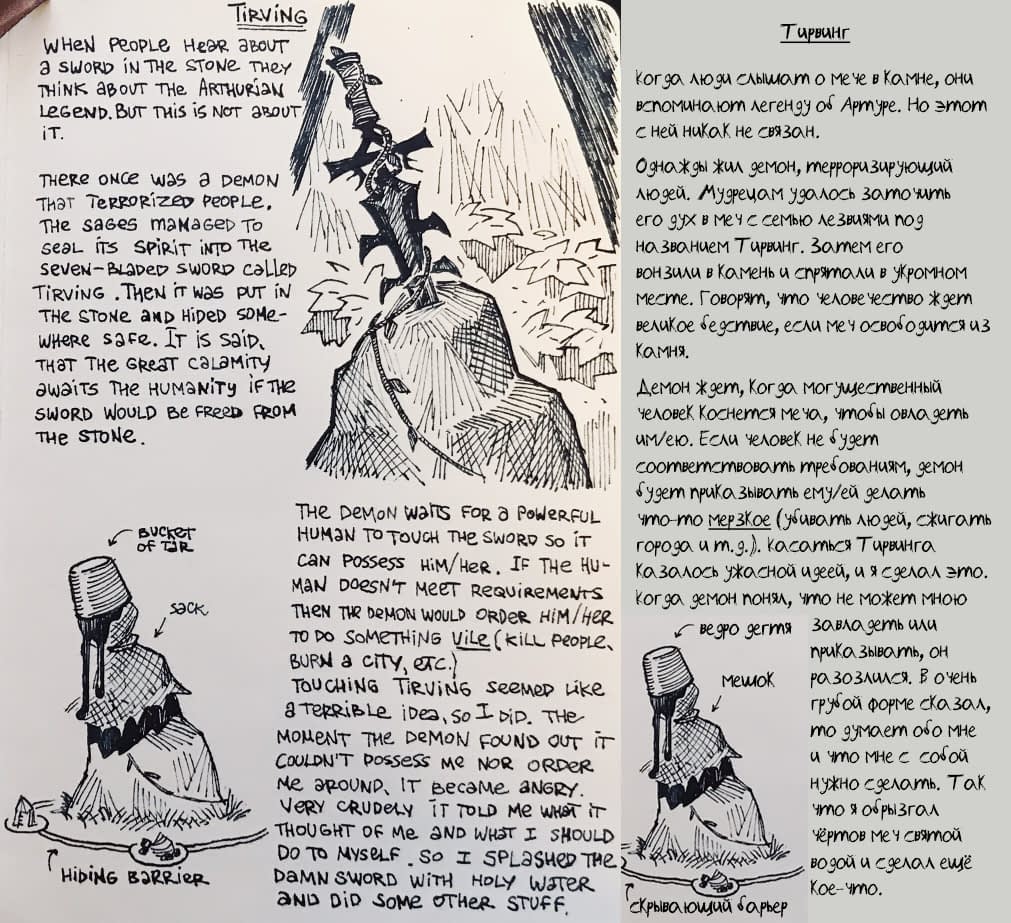 TIRVING
WHEN PEOPLE HEAR ABOUT
A SWORD IN THE STONE THEY
THINK ABOUT THE ARTHURIAN
LEGEND. BUT THIS IS NOT ABOUT
IT.
THERE ONCE WAS A DEMON
THAT TERRORIZED PEOPLE.
THE SAGES MANAGED TO
SEAL ITS SPIRIT INTO THE
SEVEN-BLADED SWORD CALLED
TIRVING. THEN IT WAS PUT IN
THE STONE AND HIDED SOME-
WHERE SAFE. IT IS SAID,
THAT THE GREAT CALAMITY
AWAITS THE HUMANITY IF THE
SWORD WOULD BE FREED FROM
THE STONE.
BUCKET
OF TAR
SACK
HIDING BARRIER
THE DEMON WAITS FOR A POWERFUL
HUMAN TO TOUCH THE SWORD SO IT
CAN POSSESS HIM/HER. IF THE HU-
MAN DOESN'T MEET REQUIREMENTS
THEN THE DEMON WOULD ORDER HIM/HER
TO DO SOMETHING VILE (KILL PEOPLE,
BURN A CITY, ETC.)
TOUCHING TIRVING SEEMED LIKE
A TERRIBLE IDEA, SO I DID. THE
MOMENT THE DEMON FOUND OUT IT
COULDN'T POSSESS ME NOR ORDER
ME AROUND, IT BECAME ANGRY.
VERY CRUDELY IT TOLD ME WHAT IT
THOUGHT OF ME AND WHAT I SHOULD
DO TO MYSELF. SO I SPLASHED THE
DAMN SWORD WITH HOLY WATER
AND DID SOME OTHER STUFF.
Тирвинг
Когда люди слышат о мече в камне, они
вспоминают легенду об Артуре. Но этот
с ней никак не связан.
Однажды жил демон, терроризирующий
людей. Мудрецам удалось заточить
его дух в меч с семью лезвиями под
названием Тирвинг. Затем его
вонзили в камень и спрятали в укромном
месте. Говорят, что человечество ждет
великое бедствие, если меч освободится из
камня.
Демон ждет, когда могущественный
человек коснется меча, чтобы овладеть
им/ею. Если человек не будет
соответствовать требованиям, демон
будет приказывать ему/ей делать
что-то мерзкое (убивать людей, сжигать
города и т.д.). Касаться Тирвинга
казалось ужасной идеей, и я сделал это.
Когда демон понял, что не может мною
завладеть или
приказывать, он
разозлился. В очень
грубой форме сказал,
то думает обо мне
и что мне с собой
нужно сделать. Так
что я обрызгал
чёртов меч святой
водой и сделал ещё
кое-что.
ведро дегтя
мешок
скрывающий барьер